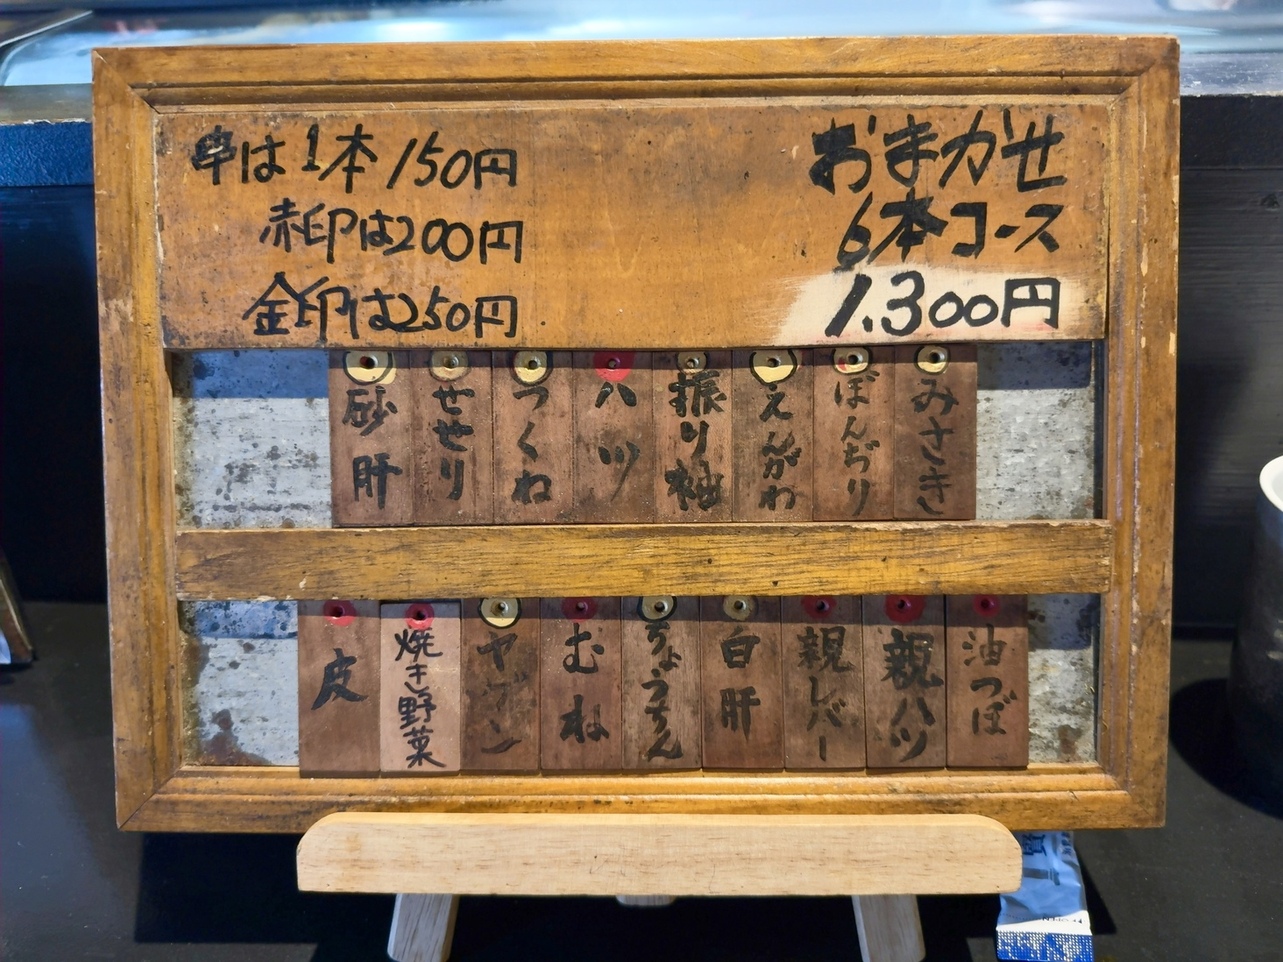 串は1本150円
赤印は200円
金印は250円
おまかせ
6本コース
1.300円
みさき
ぼんぢり
えんがわ
振り袖
ハツ
つくね
せせり
砂肝
油つぼ
親ハツ
親レバー
白肝
ちょうちん
むね
ヤゲン
焼き野菜
皮